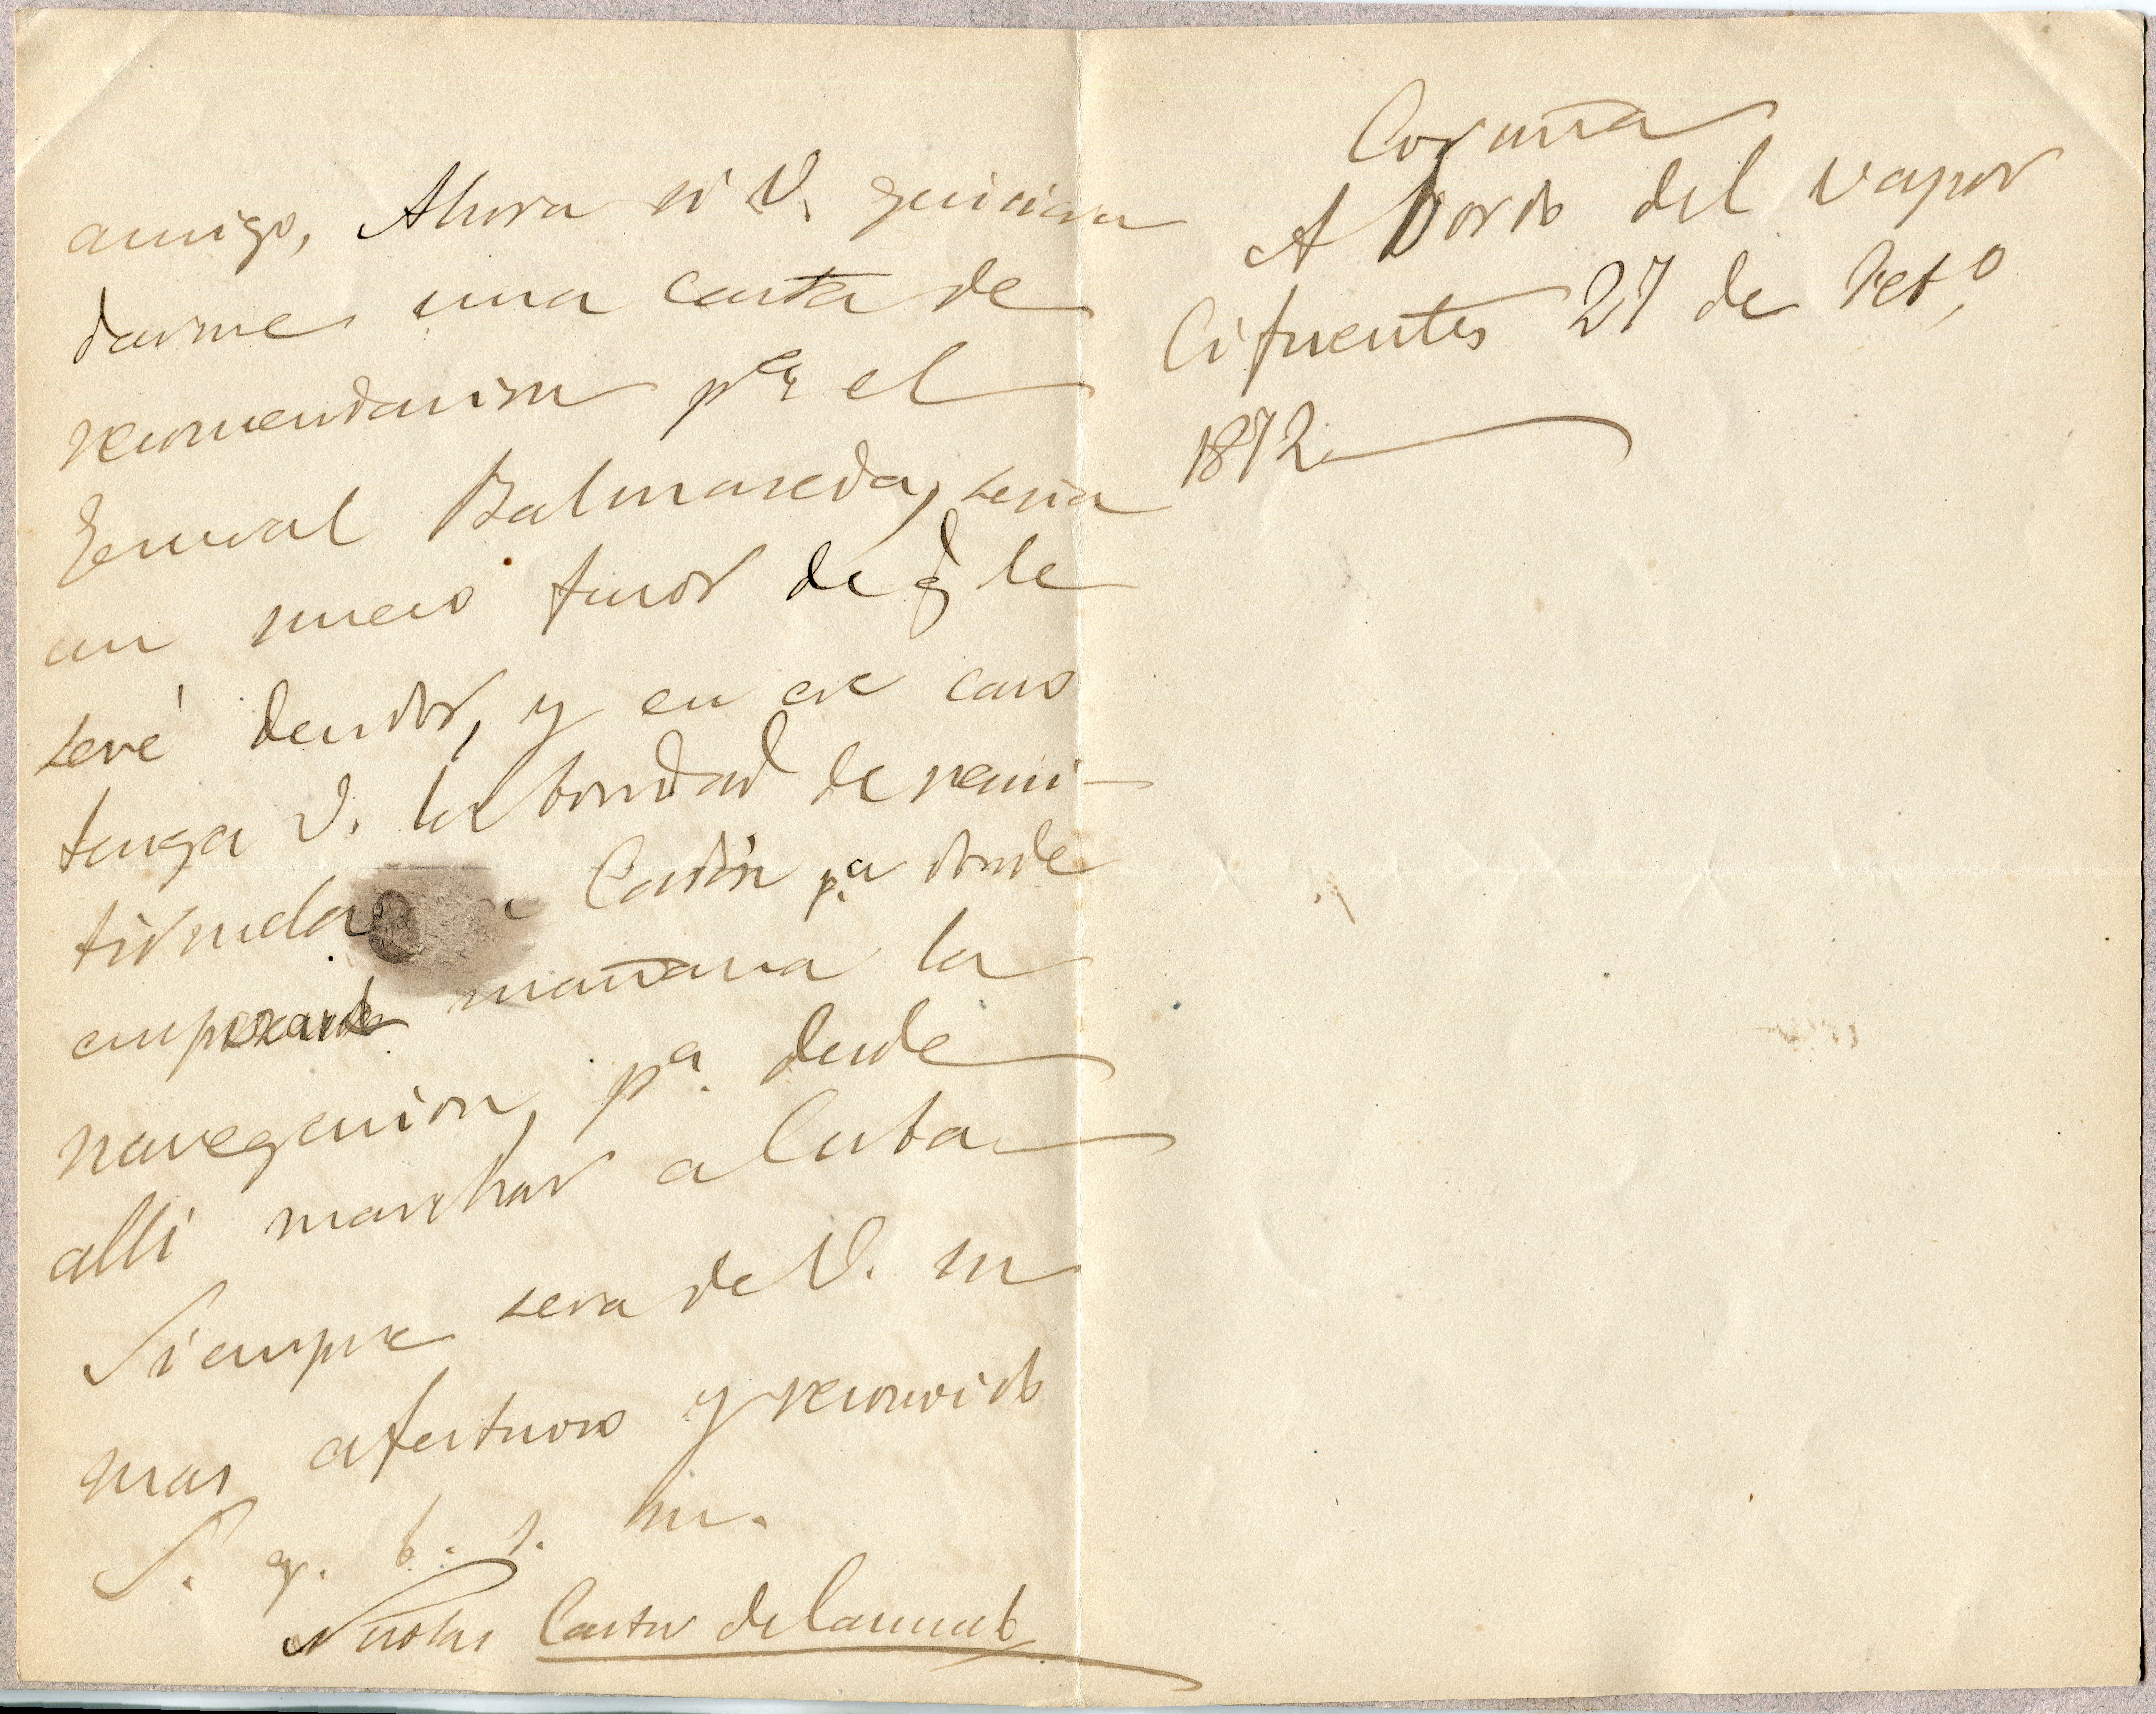 amigo, Ahora si V. quiciera
darme una carta de
recomendacion pª el
General Balmaseda, seria
un nuevo favor de q̃ le
seré deudor, y en ese caso
tenga V. la bondad de remi-
tirmela Cadiz p.ª donde
empezando mañana la
navegacion, pª. desde
alli marchar a Cuba
Siempre sera de V. su
mas afectuoso y reconocido
S. q. b. s. m.
Nicolas Castor de Caunedo
Coruña
A bordo del vapor
Cifuentes 27 de Set.º
1872